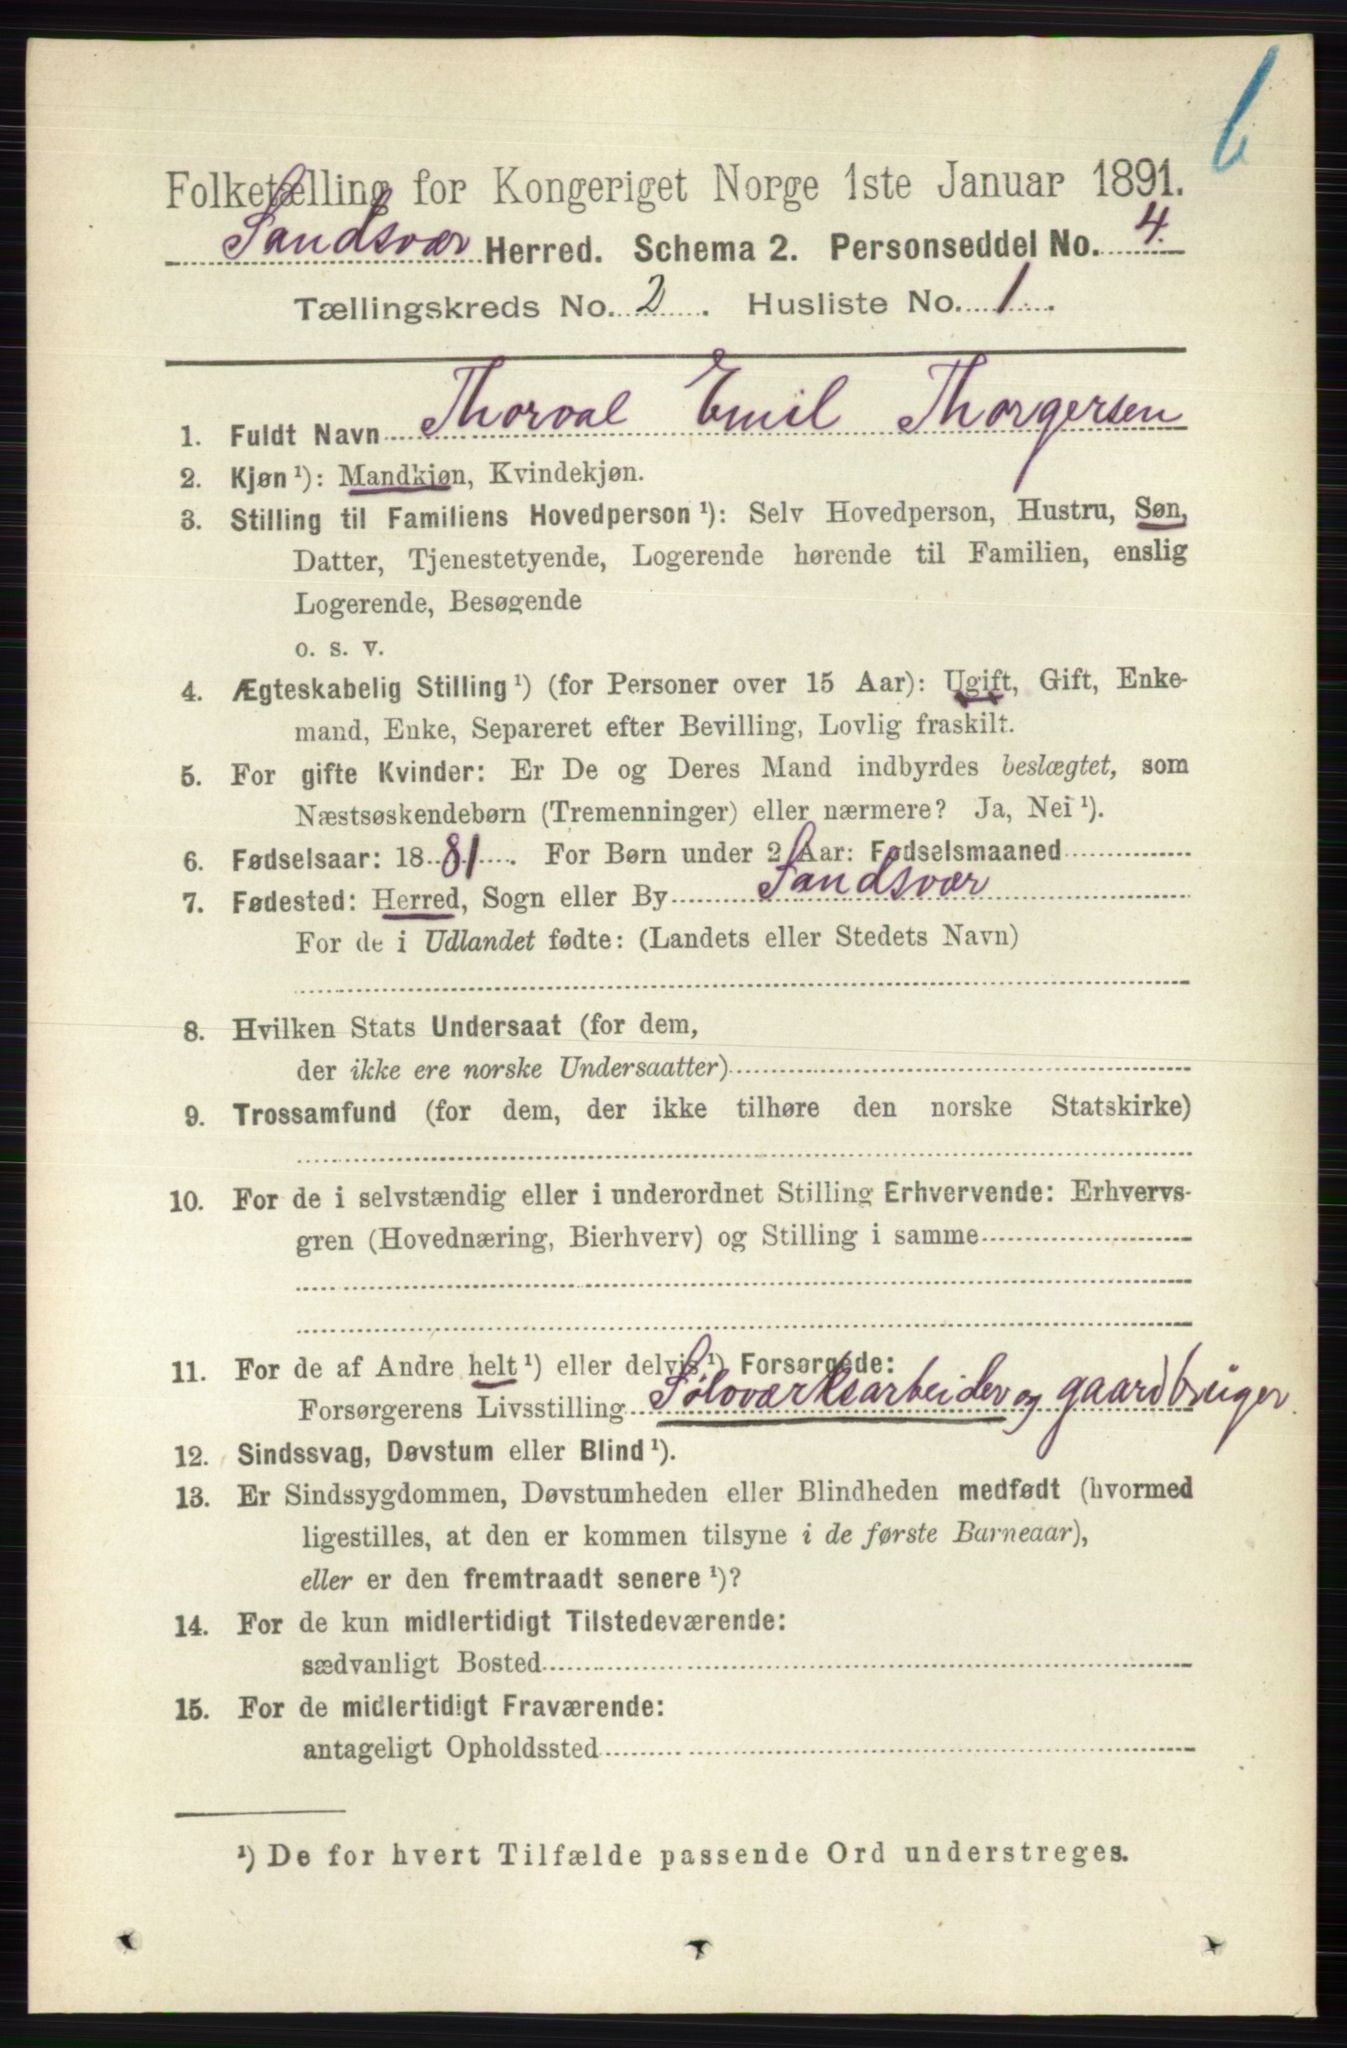 6
Folketælling for Kongeriget Norge 1ste Januar 1891.
Sandsvær Herred. Schema 2. Personseddel No. 4.
Tællingskreds No. 2. Husliste No. 1.
1. Fuldt Navn Thorval Emil Thorgersen
2. Kjøn ¹): Mandkjøn, Kvindekjøn.
3. Stilling til Familiens Hovedperson ¹): Selv Hovedperson, Hustru, Søn,
Datter, Tjenestetyende, Logerende hørende til Familien, enslig
Logerende, Besøgende
o. s. v.
4. Ægteskabelig Stilling ¹) (for Personer over 15 Aar): Ugift, Gift, Enke-
mand, Enke, Separeret efter Bevilling, Lovlig fraskilt.
5. For gifte Kvinder: Er De og Deres Mand indbyrdes beslægtet, som
Næstsøskendebørn (Tremenninger) eller nærmere? Ja, Nei ¹).
6. Fødselsaar: 1881. For Børn under 2 Aar: Fødselsmaaned
7. Fødested: Herred, Sogn eller By Sandsvær
For de i Udlandet fødte: (Landets eller Stedets Navn)
8. Hvilken Stats Undersaat (for dem,
der ikke ere norske Undersaatter)
9. Trossamfund (for dem, der ikke tilhøre den norske Statskirke)
10. For de i selvstændig eller i underordnet Stilling Erhvervende: Erhvervs-
gren (Hovednæring, Bierhverv) og Stilling i samme
11. For de af Andre helt ¹) eller delvis ¹) Forsørgede:
Forsørgerens Livsstilling Sølvværksarbeider og gaardbruger
12. Sindssvag, Døvstum eller Blind ¹).
13. Er Sindssygdommen, Døvstumheden eller Blindheden medfødt (hvormed
ligestilles, at den er kommen tilsyne i de første Barneaar),
eller er den fremtraadt senere ¹)?
14. For de kun midlertidigt Tilstedeværende:
sædvanligt Bosted
15. For de midlertidigt Fraværende:
antageligt Opholdssted
¹) De for hvert Tilfælde passende Ord understreges.